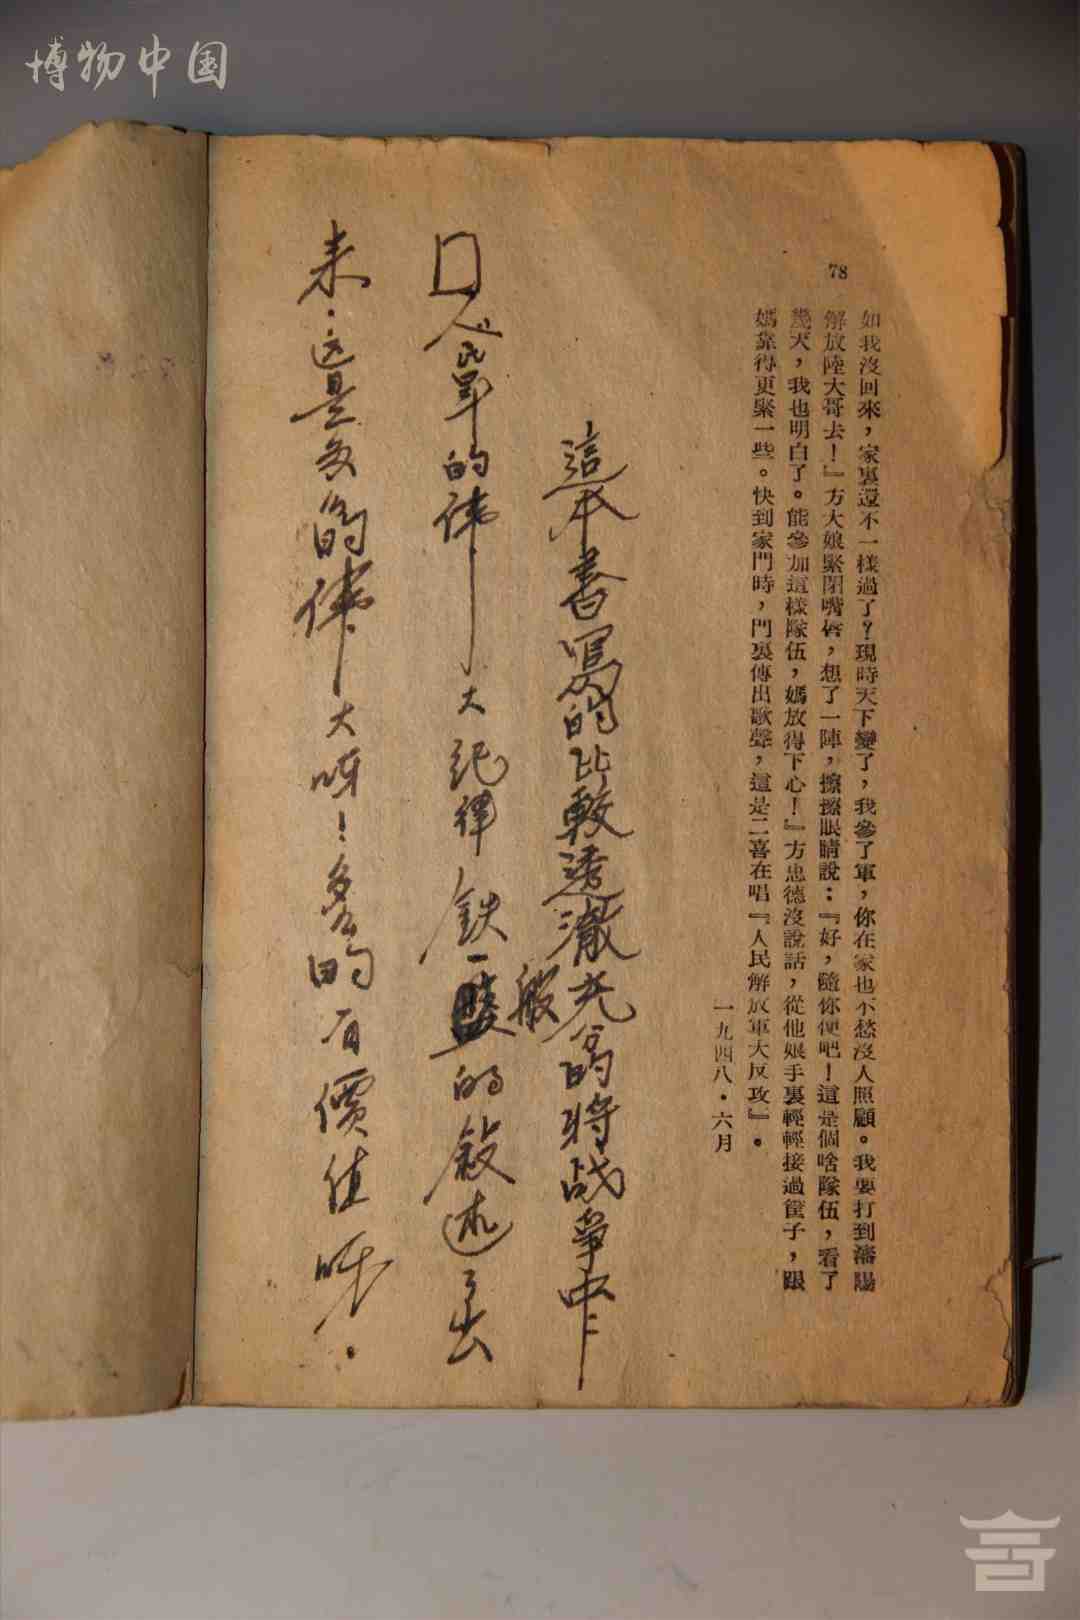 博物中国
78
如我沒回來，家裏還不一樣過了？現時天下變了，我參了軍，你在家也不愁沒人照顧。我要打到瀋陽
解放陸大哥去！』方大娘緊閉嘴唇，想了一陣，擦擦眼睛說：『好，隨你便吧！這是個啥隊伍，看了
幾天，我也明白了。能參加這樣隊伍，媽放得下心！』方忠德沒說話，從他娘手裏輕輕接過筐子，跟
媽靠得更緊一些。快到家門時，門裏傳出歌聲，這是二喜在唱『人民解放軍大反攻』。
一九四八·六月
這本書寫的比較透澈充分的将战爭中
口人民軍的偉大紀律鉄一般的敍述了出
来.这是多的偉大呀！多的有價值呀.